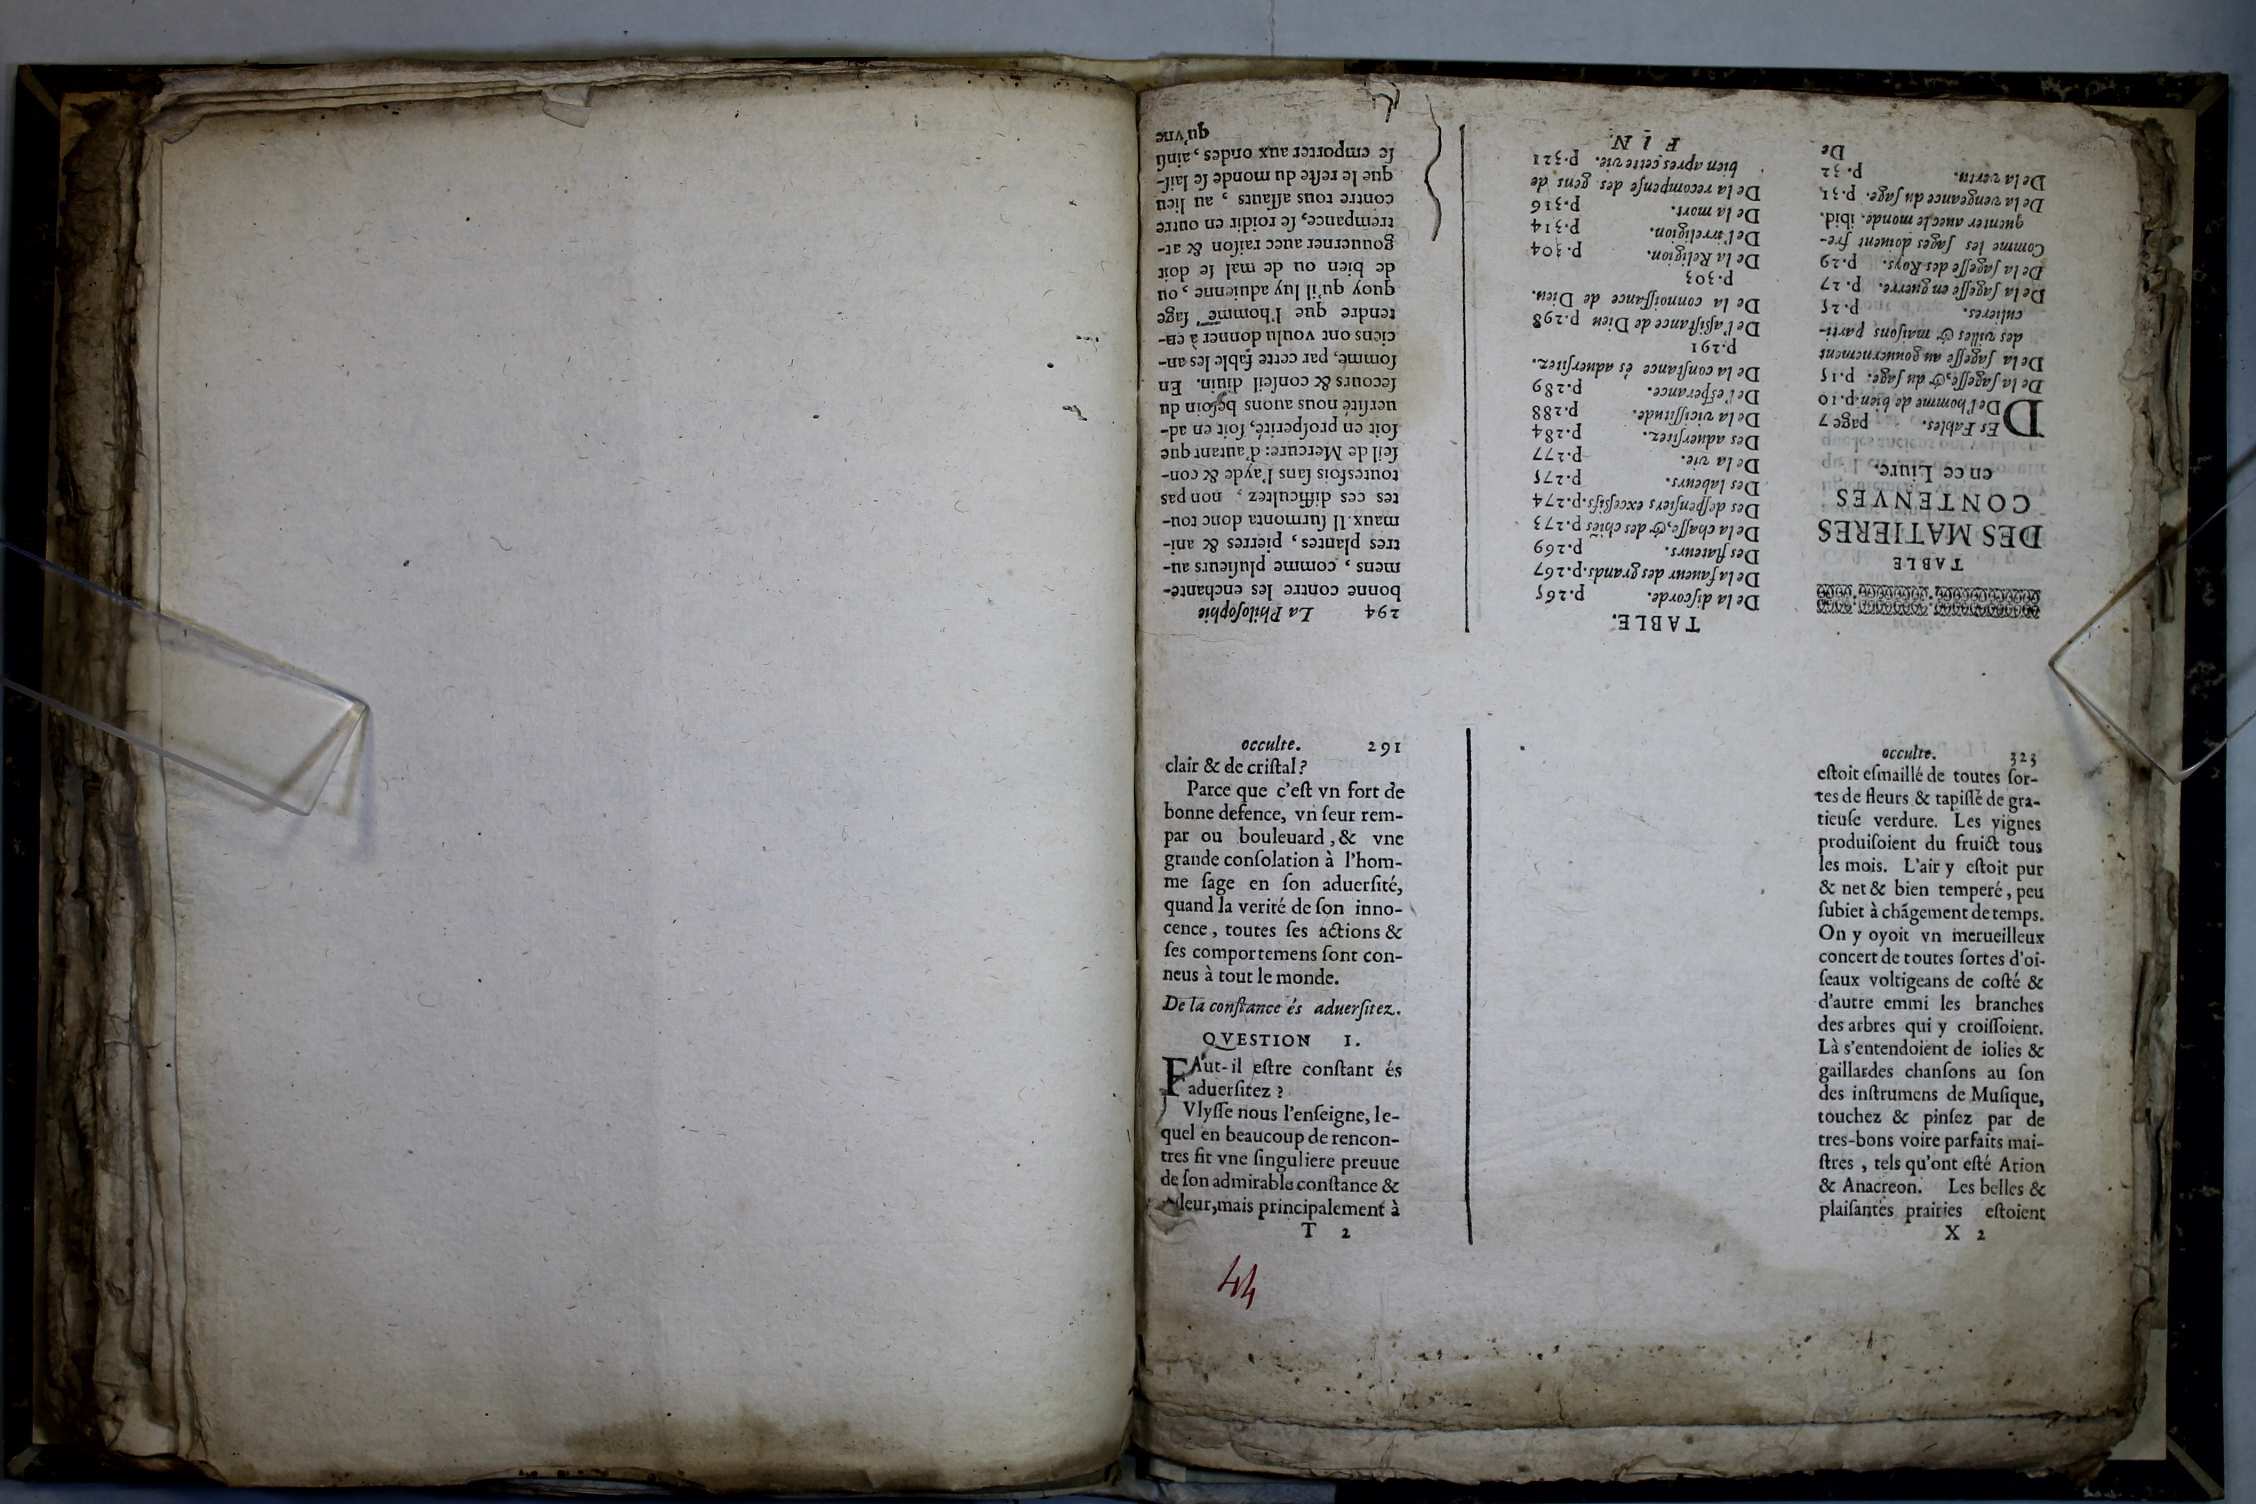 294 La Philoſophie
bonne contre les enchante-
mens, comme pluſieurs au-
tres plantes, pierres & ani-
maux. Il ſurmonta donc tou-
tes ces difficultez, non pas
toutesfois ſans l'ayde & con-
ſeil de Mercure: d'autant que
ſoit en proſperité, ſoit en ad-
uerſité nous auons beſoin du
ſecours & conſeil diuin. En
ſomme, par cette fable les an-
ciens ont voulu donner à en-
tendre que l'homme ſage
quoy qu'il luy aduienne, ou
de bien ou de mal ſe doit
gouuerner auec raiſon & at-
trempance, ſe roidir en outre
contre tous aſſauts, au lieu
que le reſte du monde ſe laiſ-
ſe emporter aux ondes, ainſi
qu'vne
TABLE.
De la diſcorde. p.265
De la faueur des grands. p.267
Des flateurs. p.269
De la chaſſe, & des chiẽs p.273
Des deſpenſiers exceßifs. p.274
Des labeurs. p.275
De la vie. p.277
Des aduerſitez. p.284
De la viciſſitude. p.288
De l'eſperance. p.289
De la conſtance ès aduerſitez.
p.291
De l'aſſiſtance de Dieu p.298
De la connoiſſance de Dieu.
p.303
De la Religion. p.304
De l'irreligion. p.314
De la mort. p.316
De la recompenſe des gens de
bien apres cette vie. p.321
FIN.
TABLE
DES MATIERES
CONTENVES
en ce Liure.
DEs Fables. page 7
De l'homme de bien. p.10
De la ſageſſe, & du ſage. p.15
De la ſageſſe au gouuernement
des villes & maiſons parti-
culieres. p.25
De la ſageſſe en guerre. p.27
De la ſageſſe des Roys. p.29
Comme les ſages doiuent fre-
quenter auec le monde. ibid.
De la vengeance du ſage. p.31
De la vertu. p.32
De
occulte. 291
clair & de criſtal?
Parce que c'eſt vn fort de
bonne defence, vn ſeur rem-
par ou bouleuard, & vne
grande conſolation à l'hom-
me ſage en ſon aduerſité,
quand la verité de ſon inno-
cence, toutes ſes actions &
ſes comportemens ſont con-
neus à tout le monde.
De la conſtance és aduerſitez.
QVESTION I.
FAut-il eſtre conſtant és
aduerſitez?
Vlyſſe nous l'enſeigne, le-
quel en beaucoup de rencon-
tres fit vne ſinguliere preuue
de ſon admirable conſtance &
leur, mais principalement à
T 2
44
occulte. 323
eſtoit eſmaillé de toutes ſor-
tes de fleurs & tapiſſé de gra-
tieuſe verdure. Les vignes
produiſoient du fruict tous
les mois. L'air y eſtoit pur
& net & bien temperé, peu
ſubiet à chãgement de temps.
On y oyoit vn merueilleux
concert de toutes ſortes d'oi-
ſeaux voltigeans de coſté &
d'autre emmi les branches
des arbres qui y croiſſoient.
Là s'entendoient de iolies &
gaillardes chanſons au ſon
des inſtrumens de Muſique,
touchez & pinſez par de
tres-bons voire parfaits mai-
ſtres, tels qu'ont eſté Arion
& Anacreon. Les belles &
plaiſantes prairies eſtoient
X 2